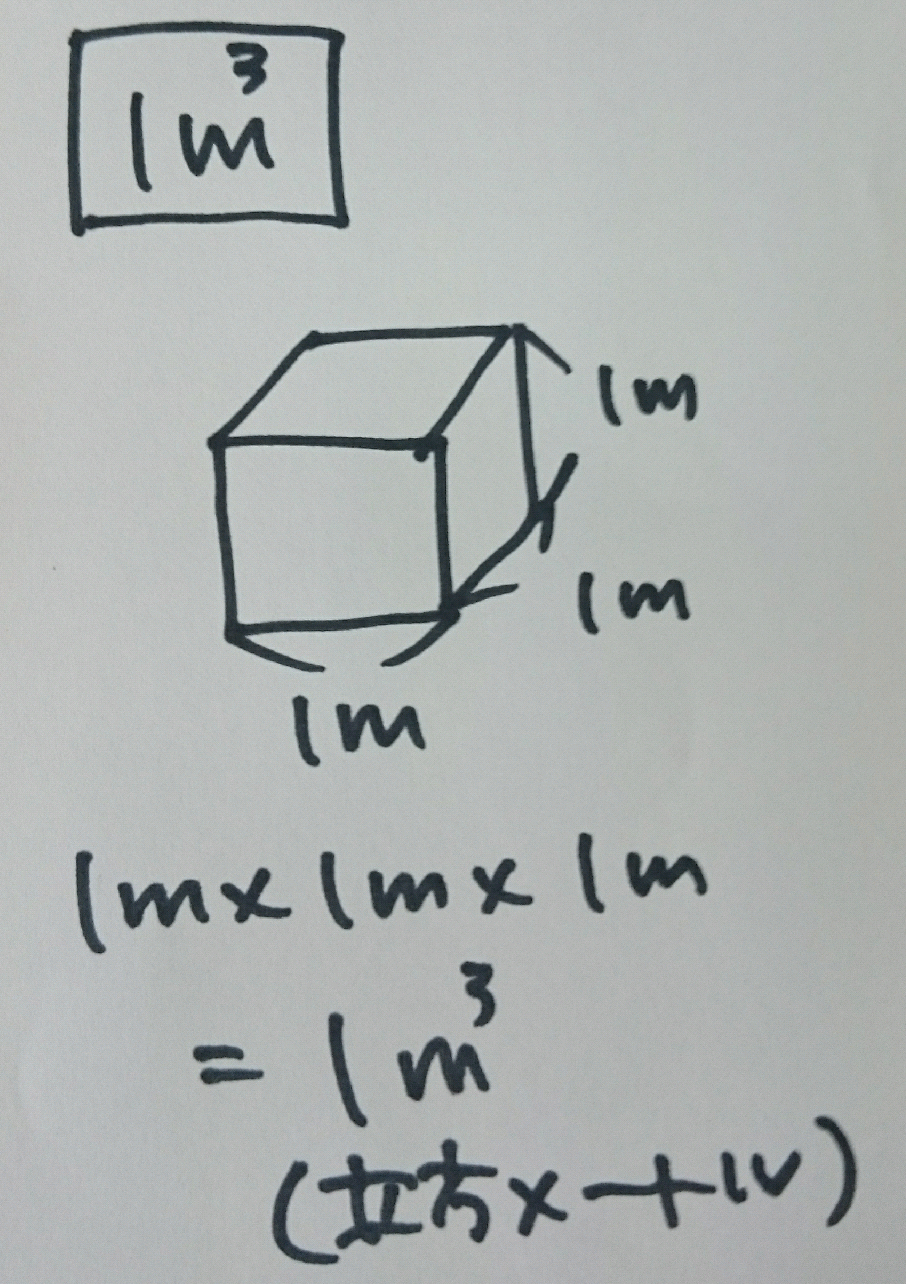 1m³
1m
1m
1m
1m×1m×1m
=1m³
(立方メートル)